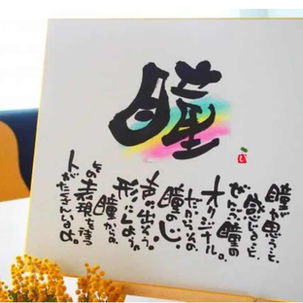 瞳
瞳が思うこと、
感じること、
ぜんぶ瞳の
オリジナル。
だからその
瞳の心、
声に出そう。
形にしよう。
瞳からの
心の表現を待つ
人がたくさんいるよ。